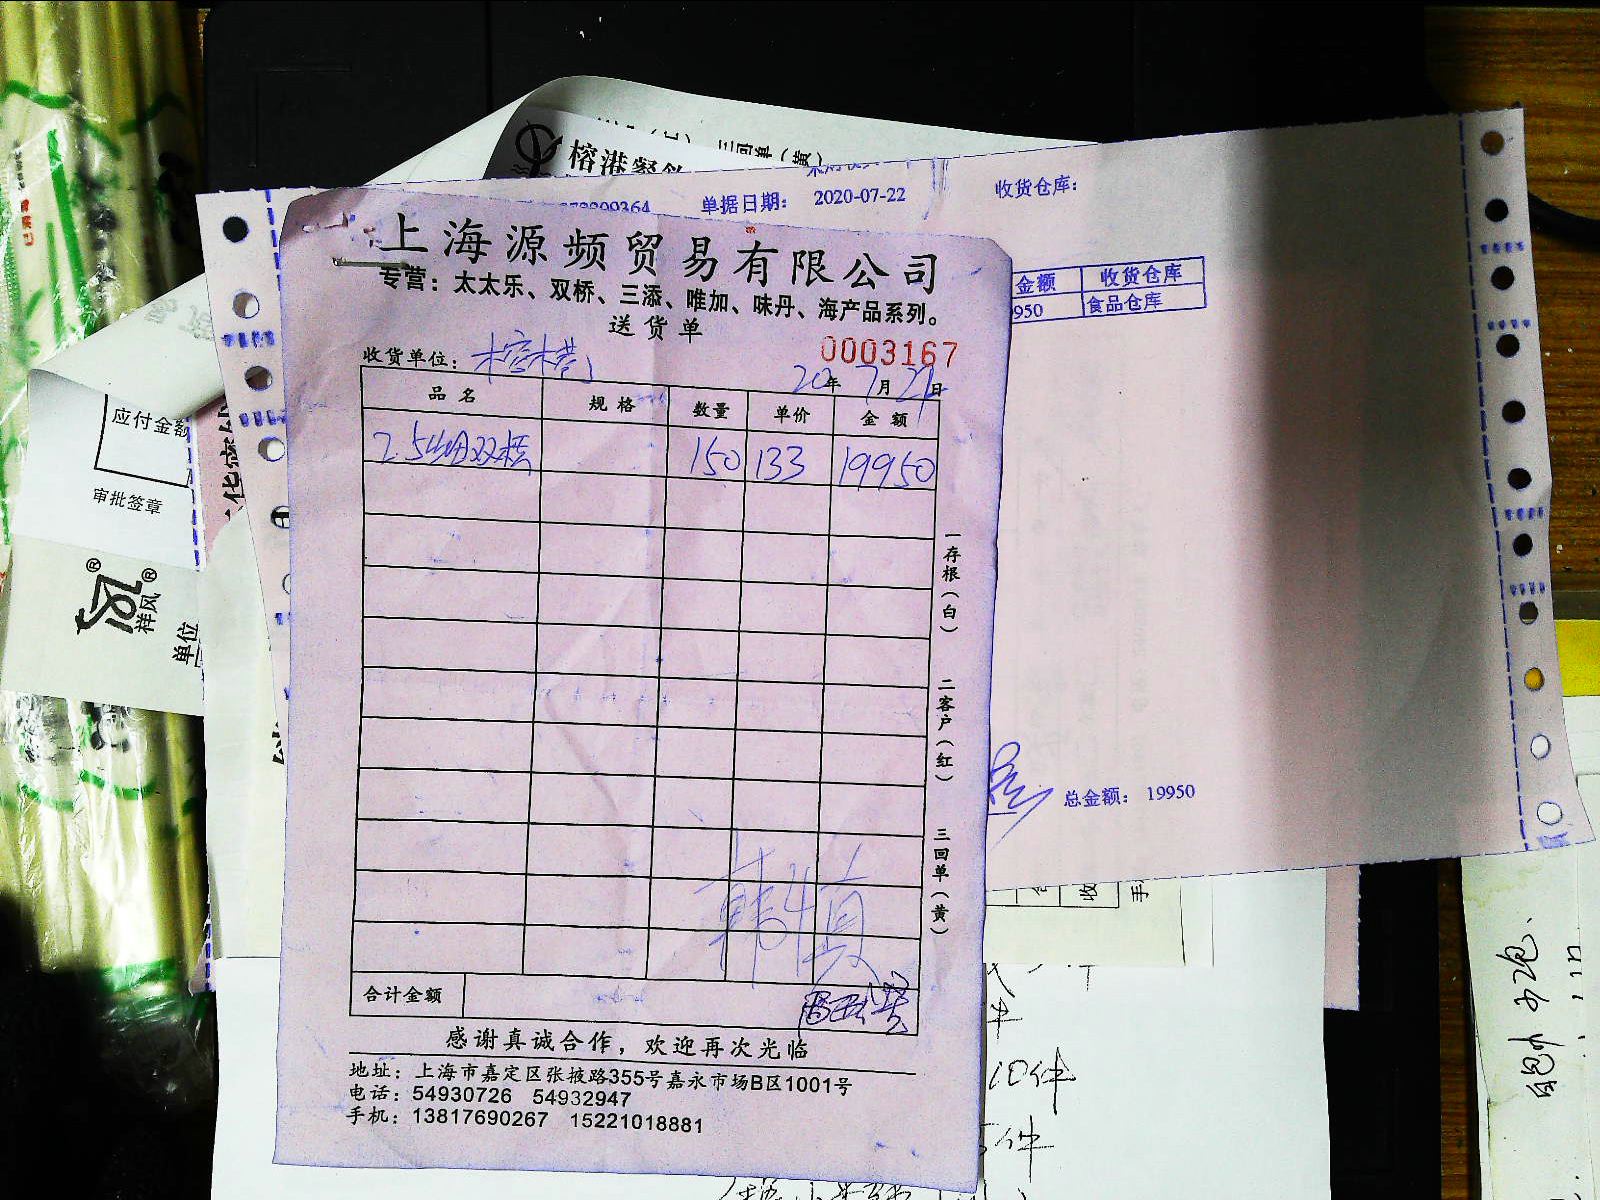 榕港餐饮
单据日期： 2020-07-22
收货仓库：
上海源频贸易有限公司
专营：太太乐、双桥、三添、唯加、味丹、海产品系列。
送货单
0003167
收货单位：榕港
20年7月22日
品名 规格 数量 单价 金额
2.5 双桥 150 133 19950
一存根（白）
二客户（红）
三回单（黄）
合计金额
感谢真诚合作，欢迎再次光临
地址：上海市嘉定区张掖路355号嘉永市场B区1001号
电话：54930726 54932947
手机：13817690267 15221018881
金额 收货仓库
950 食品仓库
总金额： 19950
应付金额
审批签章
祥风
单位
10件
件